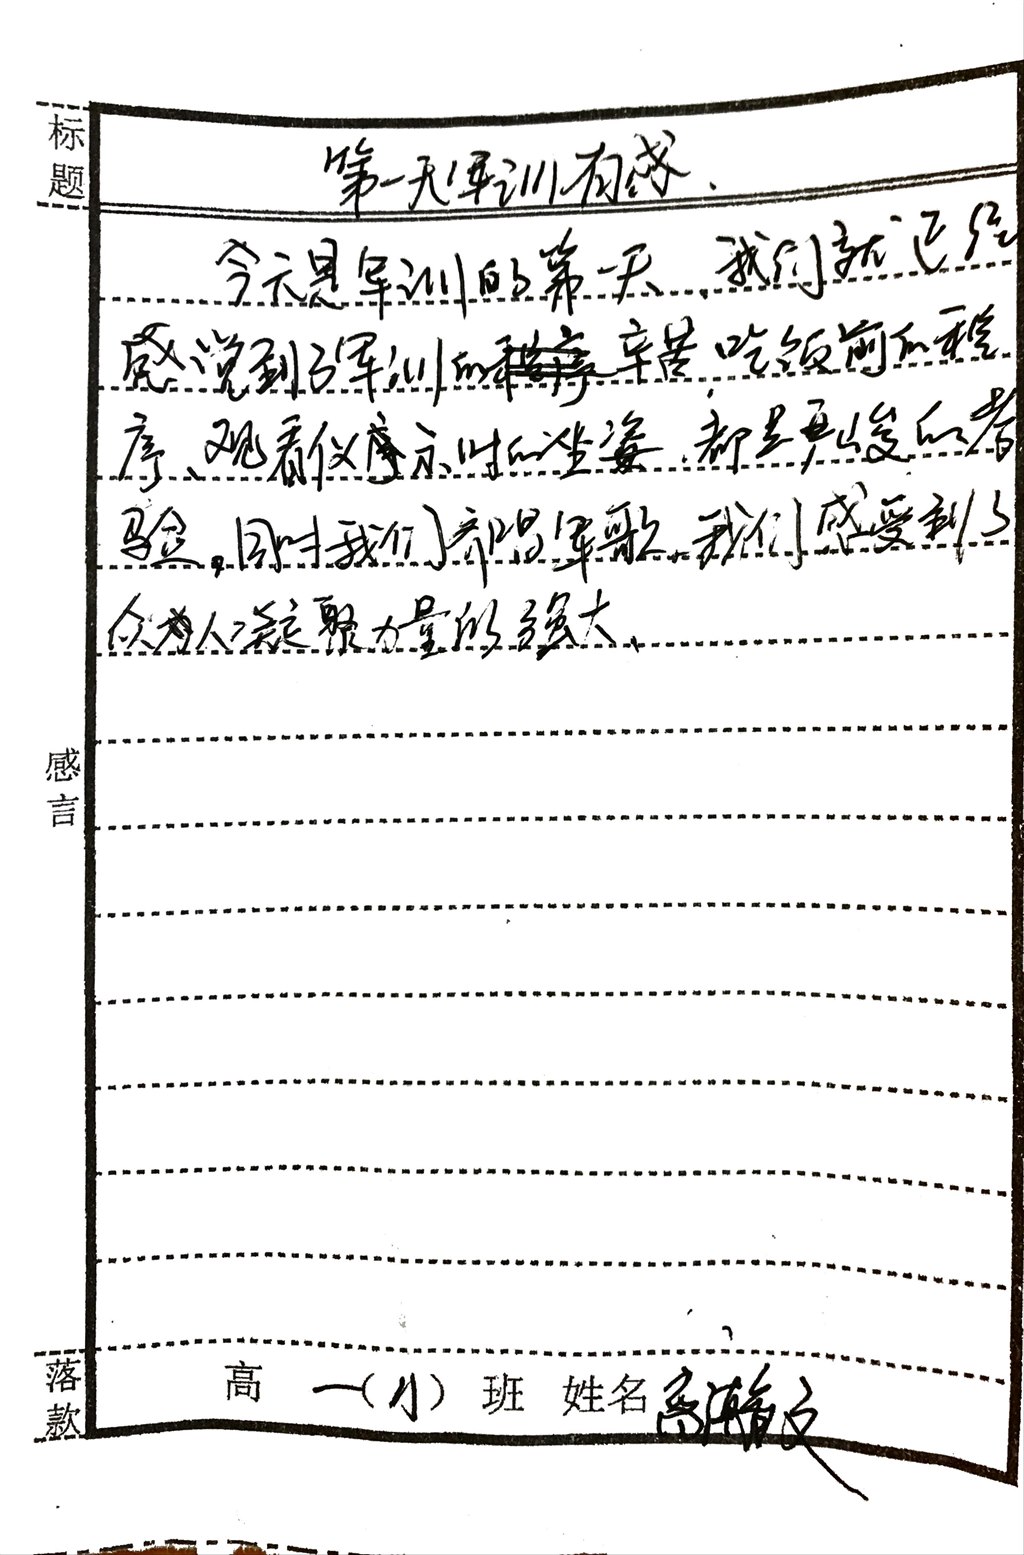 标题
第一天军训有感.
今天是军训的第一天,我们就已经
感觉到了军训的辛苦,吃饭前的秩
序、观看仪序示时的坐姿,都是严峻的考
验。同时我们齐唱军歌,我们感受到了
众为人凝聚力量的强大.
感言
落款
高一( )班 姓名高瀚文